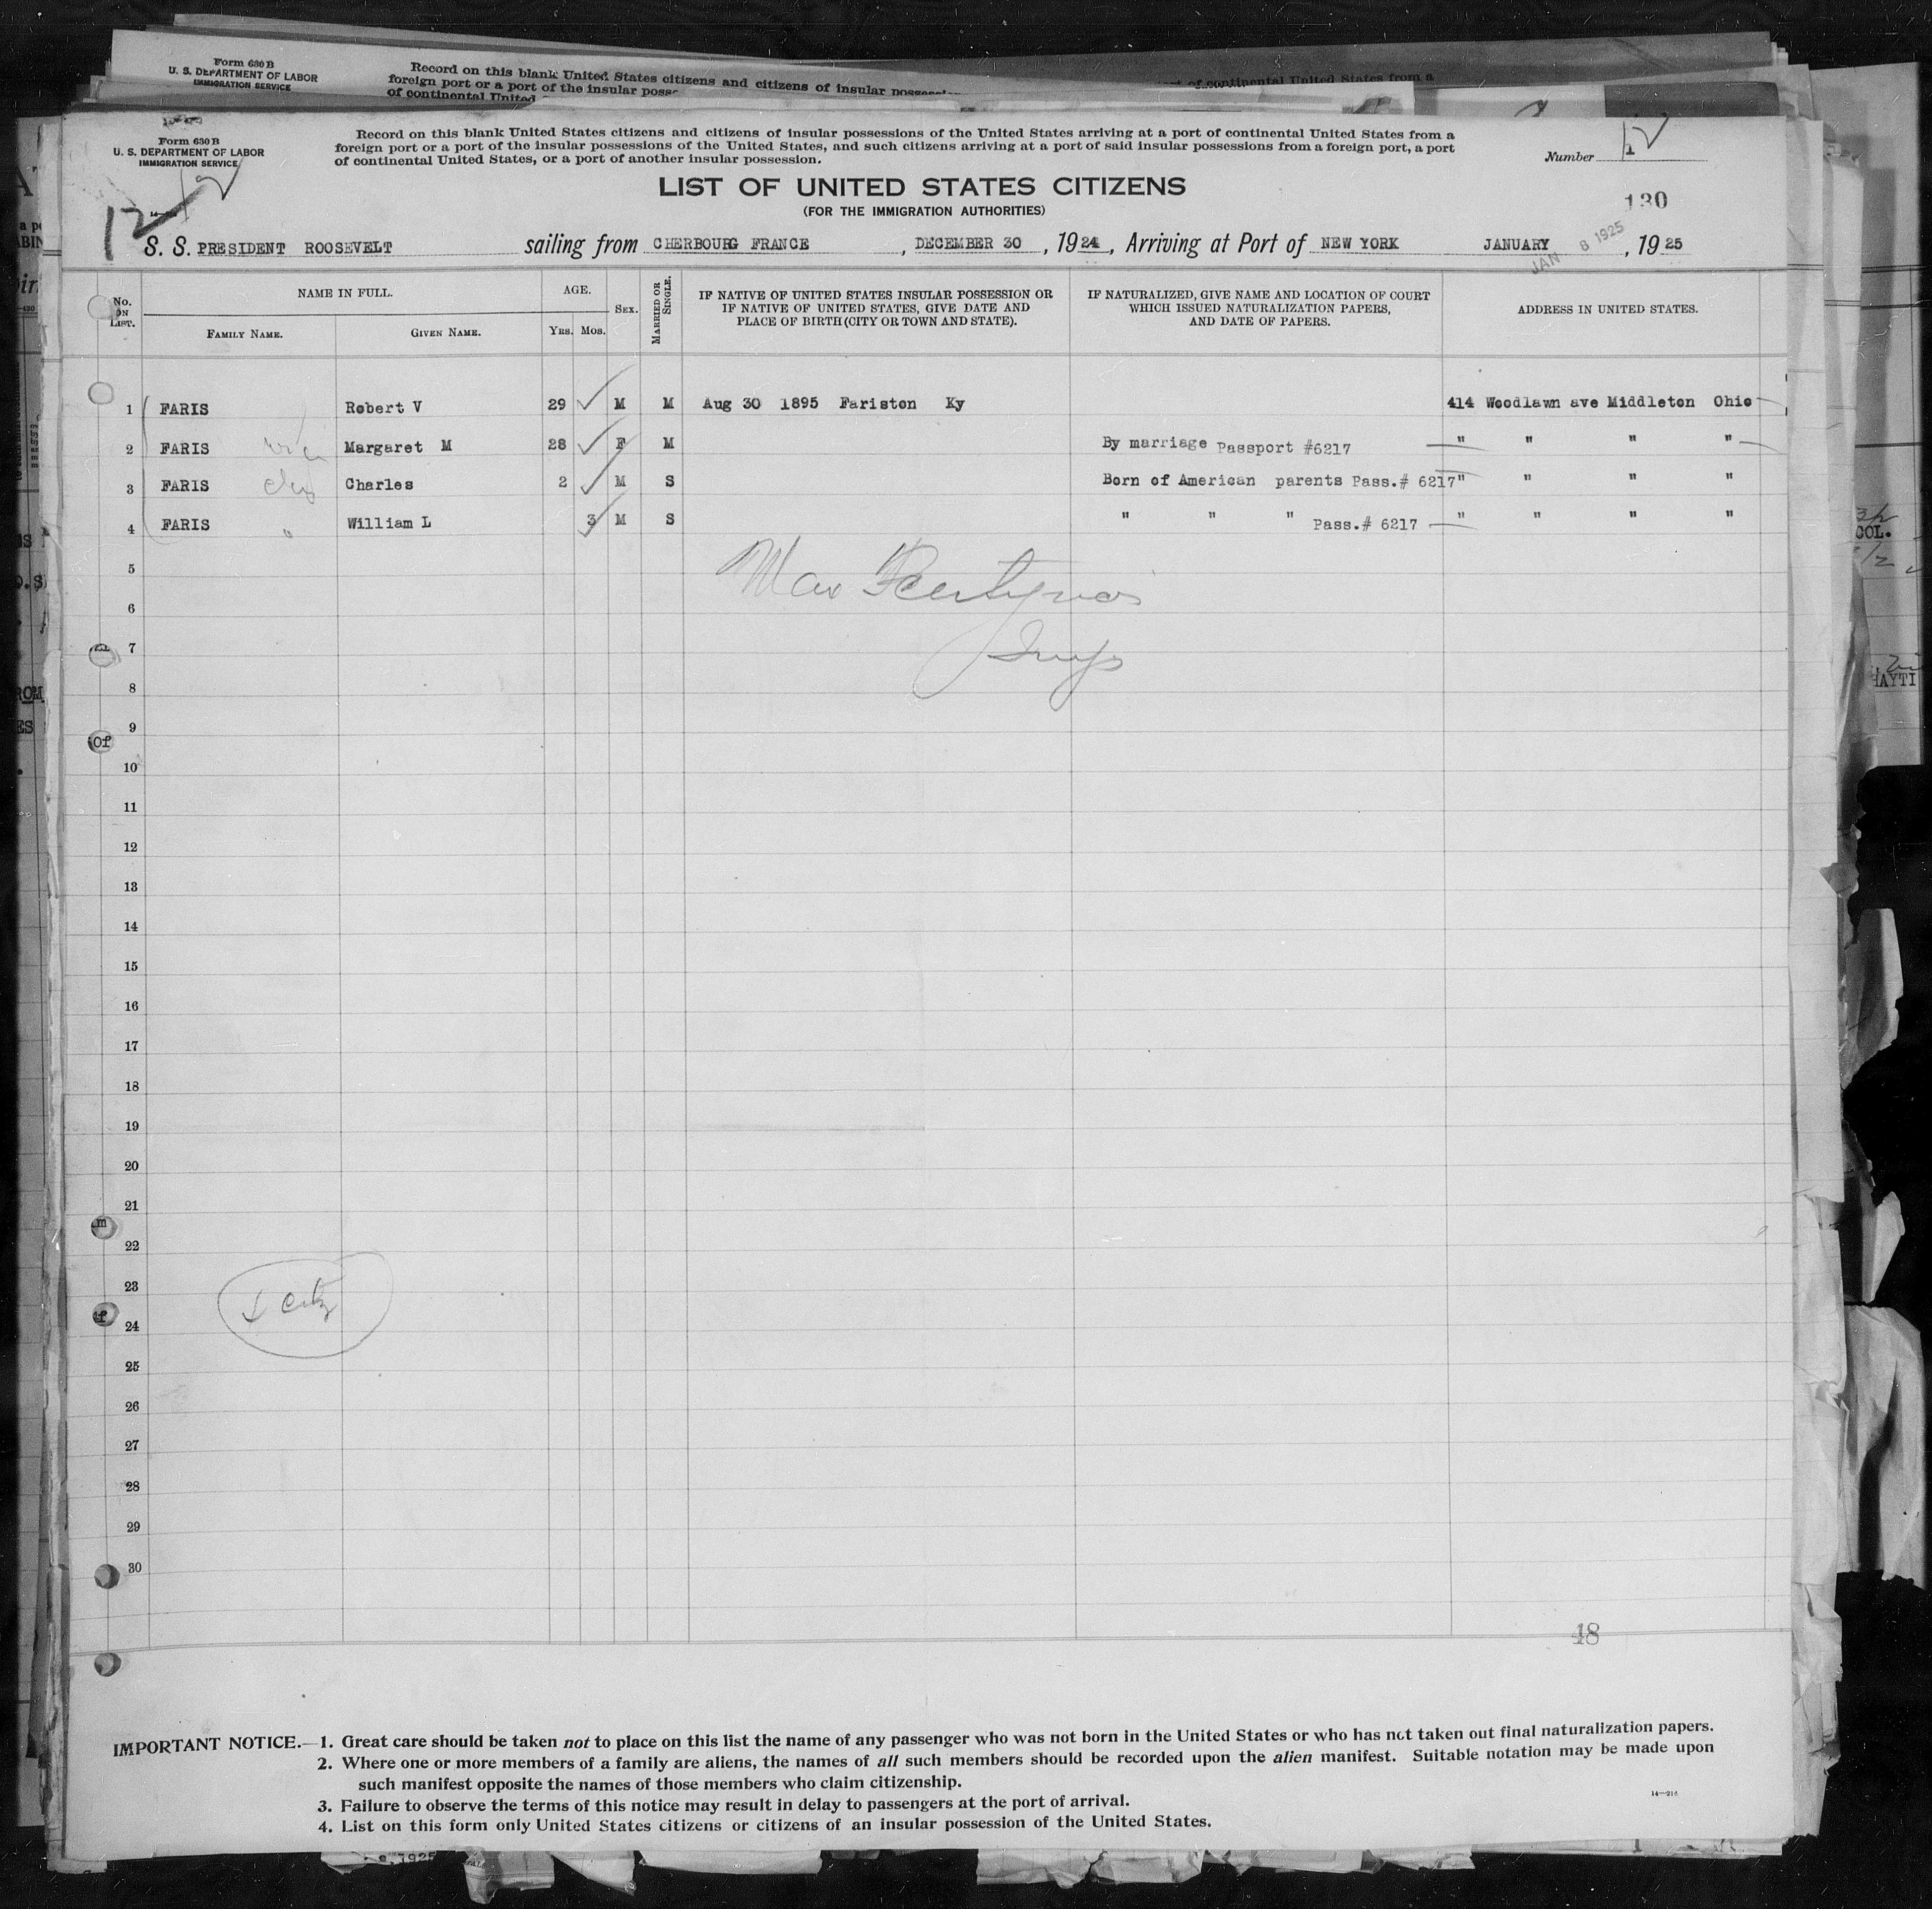 Form 630 B
U. S. DEPARTMENT OF LABOR
IMMIGRATION SERVICE
Record on this blank United States citizens and citizens of insular
foreign port or a port of the insular
of continental United
of continental United States from a
Form 630 B
U. S. DEPARTMENT OF LABOR
IMMIGRATION SERVICE
Record on this blank United States citizens and citizens of insular possessions of the United States arriving at a port of continental United States from a
foreign port or a port of the insular possessions of the United States, and such citizens arriving at a port of said insular possessions from a foreign port, a port
of continental United States, or a port of another insular possession.
Number 1
12
LIST OF UNITED STATES CITIZENS
(FOR THE IMMIGRATION AUTHORITIES)
130
S. S. PRESIDENT ROOSEVELT sailing from CHERBOURG FRANCE, DECEMBER 30, 1924, Arriving at Port of NEW YORK JANUARY, 1925
JAN 8 1925
No. ON LIST. NAME IN FULL. AGE. SEX. MARRIED OR SINGLE. IF NATIVE OF UNITED STATES INSULAR POSSESSION OR IF NATIVE OF UNITED STATES, GIVE DATE AND PLACE OF BIRTH (CITY OR TOWN AND STATE). IF NATURALIZED, GIVE NAME AND LOCATION OF COURT WHICH ISSUED NATURALIZATION PAPERS, AND DATE OF PAPERS. ADDRESS IN UNITED STATES.
FAMILY NAME. GIVEN NAME. YRS. MOS.
1 FARIS Robert V 29 M M Aug 30 1895 Fariston Ky 414 Woodlawn ave Middleton Ohio
2 FARIS Margaret M 28 F M By marriage Passport #6217 " " " "
3 FARIS Charles 2 M S Born of American parents Pass.# 6217 " " " "
4 FARIS " William L 3 M S " " " Pass.# 6217 " " " "
5
6
7
8
9
10
11
12
13
14
15
16
17
18
19
20
21
22
23
24
25
26
27
28
29
30
48
IMPORTANT NOTICE.—1. Great care should be taken not to place on this list the name of any passenger who was not born in the United States or who has not taken out final naturalization papers.
2. Where one or more members of a family are aliens, the names of all such members should be recorded upon the alien manifest. Suitable notation may be made upon
such manifest opposite the names of those members who claim citizenship.
3. Failure to observe the terms of this notice may result in delay to passengers at the port of arrival.
4. List on this form only United States citizens or citizens of an insular possession of the United States.
14—216